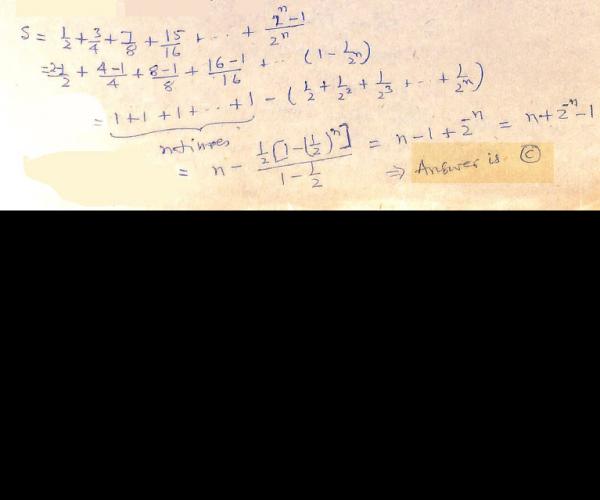 S = 1/2 + 3/4 + 7/8 + 15/16 + ... + (2^n - 1)/2^n
= (2-1)/2 + (4-1)/4 + (8-1)/8 + (16-1)/16 + .. (1 - 1/2^n)
= 1 + 1 + 1 + ... + 1 - (1/2 + 1/2^2 + 1/2^3 + ... + 1/2^n)
n times
= n - (1/2 [1 - (1/2)^n])/(1 - 1/2) = n - 1 + 2^-n = n + 2^-n - 1
⇒ Answer is. Ⓒ